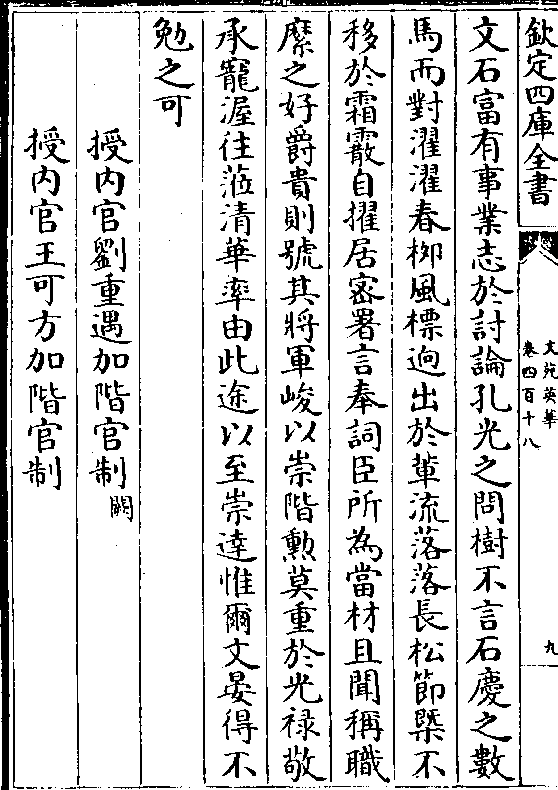 欽定四庫全書
文苑英華
卷四百十八
九
文石富有事業志於討論孔光之問樹不言石慶之數
馬而對濯濯春栁風標逈出於輩流落落長松節槩不
移於霜霰自擢居密署言奉詞臣所為當材且聞稱職
縻之好爵貴則號其將軍峻以崇階勲莫重於光禄敬
承寵渥往蒞清華率由此途以至崇達惟爾文晏得不
勉之可
授内官劉重遇加階官制闕
授内官王可方加階官制